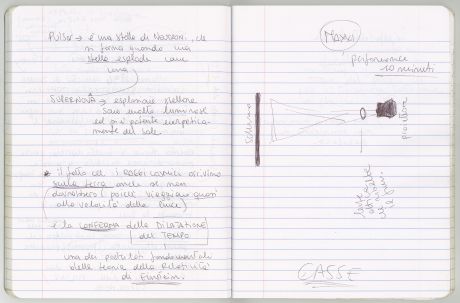 PULSAR → è una stella di NEUTRONI, che
si forma quando una
stella esplode come
una
SUPERNOVA → esplosione stellare
sono molto luminose
ed più potente energetica-
mente del sole.
* il fatto che i RAGGI COSMICI arrivino
sulla terra anche se non
dovrebbero (poiché viaggiano quasi
alla velocità della luce)
è la CONFERMA della DILATAZIONE
del TEMPO
una dei postulati fondamentali
della teoria della Relatività
di Einstein.
performance
10 minuti
Schermo
proiettore
CASSE